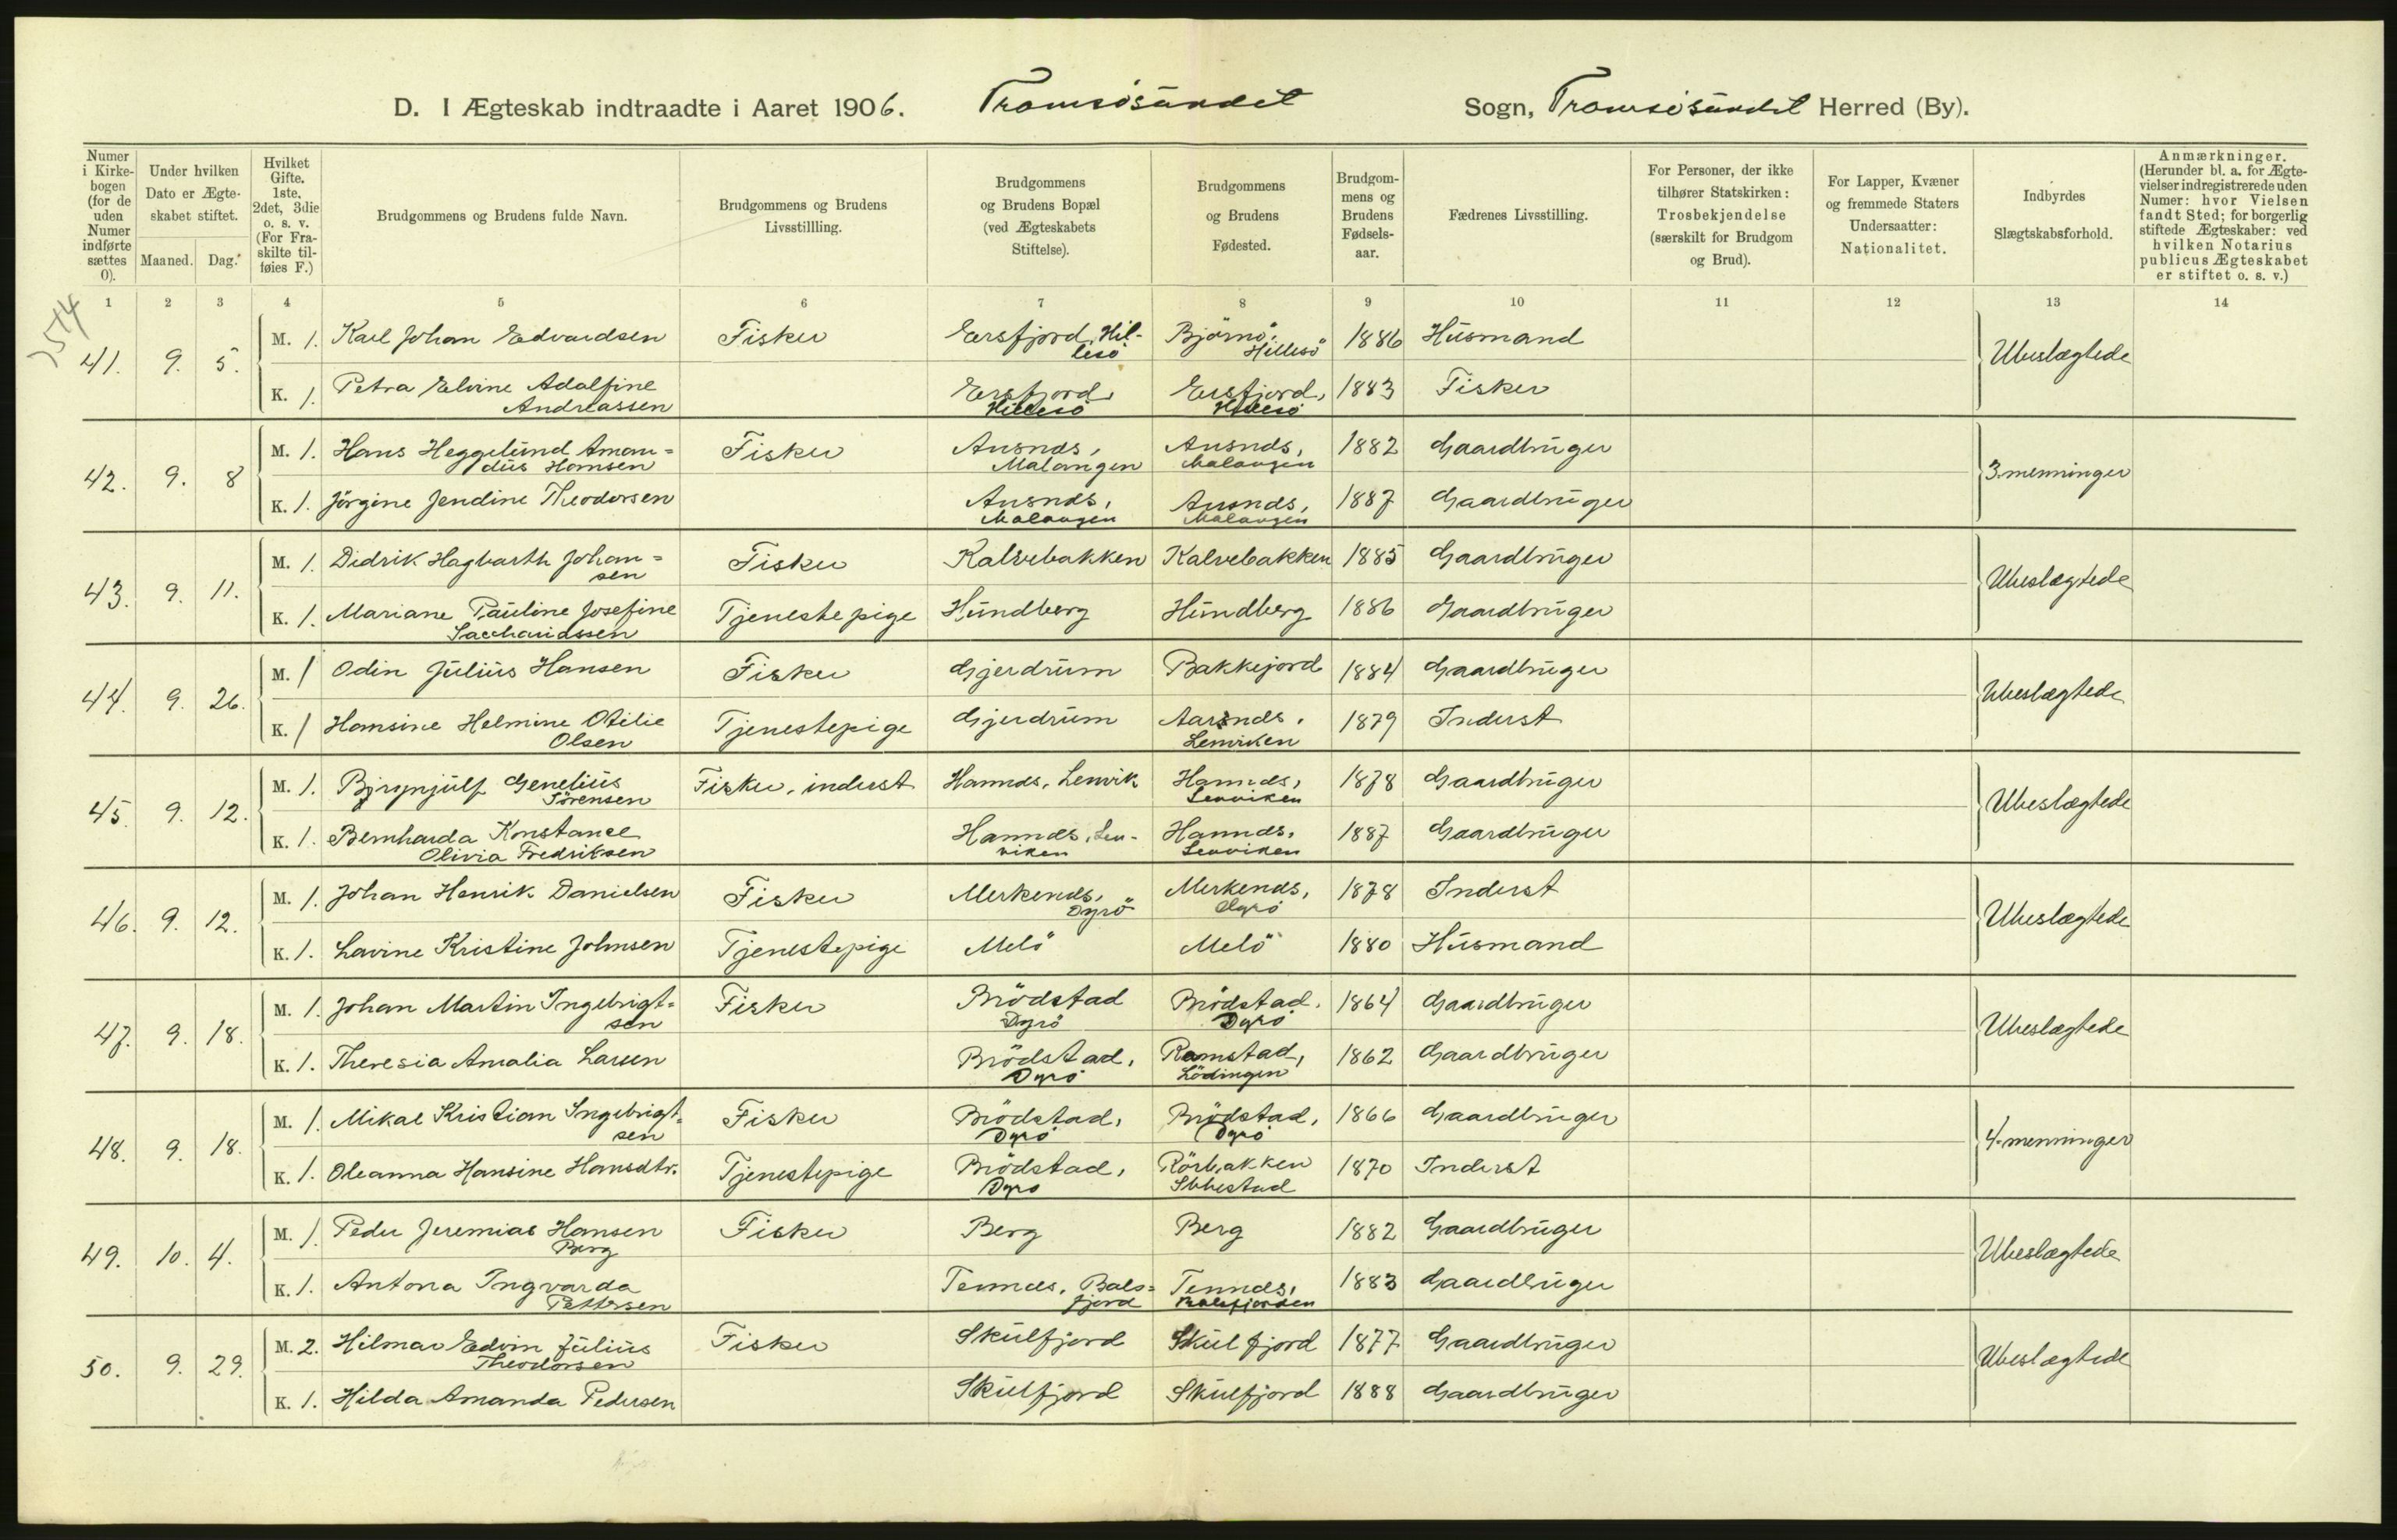 D. I Ægteskab indtraadte i Aaret 1906. Tromsösundet Sogn, Tromsösundet Herred (By).
Numer i Kirke-bogen (for de uden Numer indførte sættes 0).
Under hvilken Dato er Ægte-skabet stiftet.
Maaned. Dag.
Hvilket Gifte. 1ste, 2det, 3die o. s. v. (For Fra-skilte til-føies F.)
Brudgommens og Brudens fulde Navn.
Brudgommens og Brudens Livsstillling.
Brudgommens og Brudens Bopæl (ved Ægteskabets Stiftelse).
Brudgommens og Brudens Fødested.
Brudgom-mens og Brudens Fødsels-aar.
Fædrenes Livsstilling.
For Personer, der ikke tilhører Statskirken: Trosbekjendelse (særskilt for Brudgom og Brud).
For Lapper, Kvæner og fremmede Staters Undersaatter: Nationalitet.
Indbyrdes Slægtskabsforhold.
Anmærkninger. (Herunder bl. a. for Ægte-vielser indregistrerede uden Numer: hvor Vielsen fandt Sted; for borgerlig stiftede Ægteskaber: ved hvilken Notarius publicus Ægteskabet er stiftet o. s. v.)
1 2 3 4 5 6 7 8 9 10 11 12 13 14
41. 9. 5. M. 1. Karl Johan Edvardsen Fisker Ersfjord, Hil-lesö Björnö, Hillesö 1886 Husmand Ubeslægtede
K. 1. Petra Elvine Adolfine Andreassen Ersfjord, Hillesö Ersfjord, Hillesö 1883 Fisker
42. 9. 8 M. 1. Hans Heggelund Aman=dus Hansen Fisker Ansnds, Malangen Ansnds, Malangen 1882 Gaardbruger 3-menninger
K. 1. Jörgine Jendine Theodorsen Ansnds, Malangen Ansnds, Malangen 1887 Gaardbruger
43. 9. 11. M. 1. Didrik Hagbarth Johan=sen Fisker Kalvebakken Kalvebakken 1885 Gaardbruger Ubeslægtede
K. 1. Mariane Pauline Josefine Sacchariassen Tjenestepige Hundberg Hundberg 1886 Gaardbruger
44. 9. 26. M. 1 Odin Julius Hansen Fisker Gjerdrum Bakkejord 1884 Gaardbruger Ubeslægtede
K. 1 Hansine Helmine Otilie Olsen Tjenestepige Gjerdrum Aarsnds, Lenviken 1879 Inderst
45. 9. 12. M. 1. Bjrynjulf Genelius Sörensen Fisker, inderst Hannds, Lenvik Hannds, Lenviken 1878 Gaardbruger Ubeslægtede
K. 1. Bernharda Konstance Olivia Fredriksen Hannds, Len-viken Hannds, Lenviken 1887 Gaardbruger
46. 9. 12. M. 1. Johan Henrik Danielsen Fisker Merkends, Dyrö Merkends, Dyrö 1878 Inderst Ubeslægtede
K. 1. Lavine Kristine Johnsen Tjenestepige Melö Melö 1880 Husmand
47. 9. 18. M. 1. Johan Martin Ingebrigt=sen Fisker Brödstad Dyrö Brödstad, Dyrö 1864 Gaardbruger Ubeslægtede
K. 1. Theresia Amalia Larsen Brödstad, Dyrö Ramstad, Lödingen 1862 Gaardbruger
48. 9. 18. M. 1. Mikal Kristian Ingebrigt=sen Fisker Brödstad, Dyrö Brödstad, Dyrö 1866 Gaardbruger 4-menninger
K. 1. Oleanna Hansine Hansdtr. Tjenestepige Brödstad, Dyrö Rörbakken Ibbestad 1870 Inderst
49. 10. 4. M. 1. Peder Jeremias Hansen Berg Fisker Berg Berg 1882 Gaardbruger Ubeslægtede
K. 1. Antona Ingvarda Pettersen Tennds, Bals=fjord Tennds, Balsfjorden 1883 Gaardbruger
50. 9. 29. M. 2. Hilmar Edvin Julius Theodorsen Fisker Skulfjord Skulfjord 1877 Gaardbruger Ubeslægtede
K. 1. Hilda Amanda Pedersen Skulfjord Skulfjord 1888 Gaardbruger